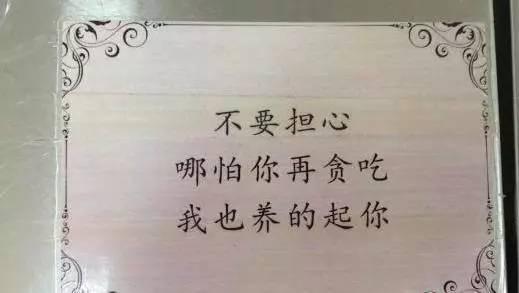 不要担心
哪怕你再贪吃
我也养的起你